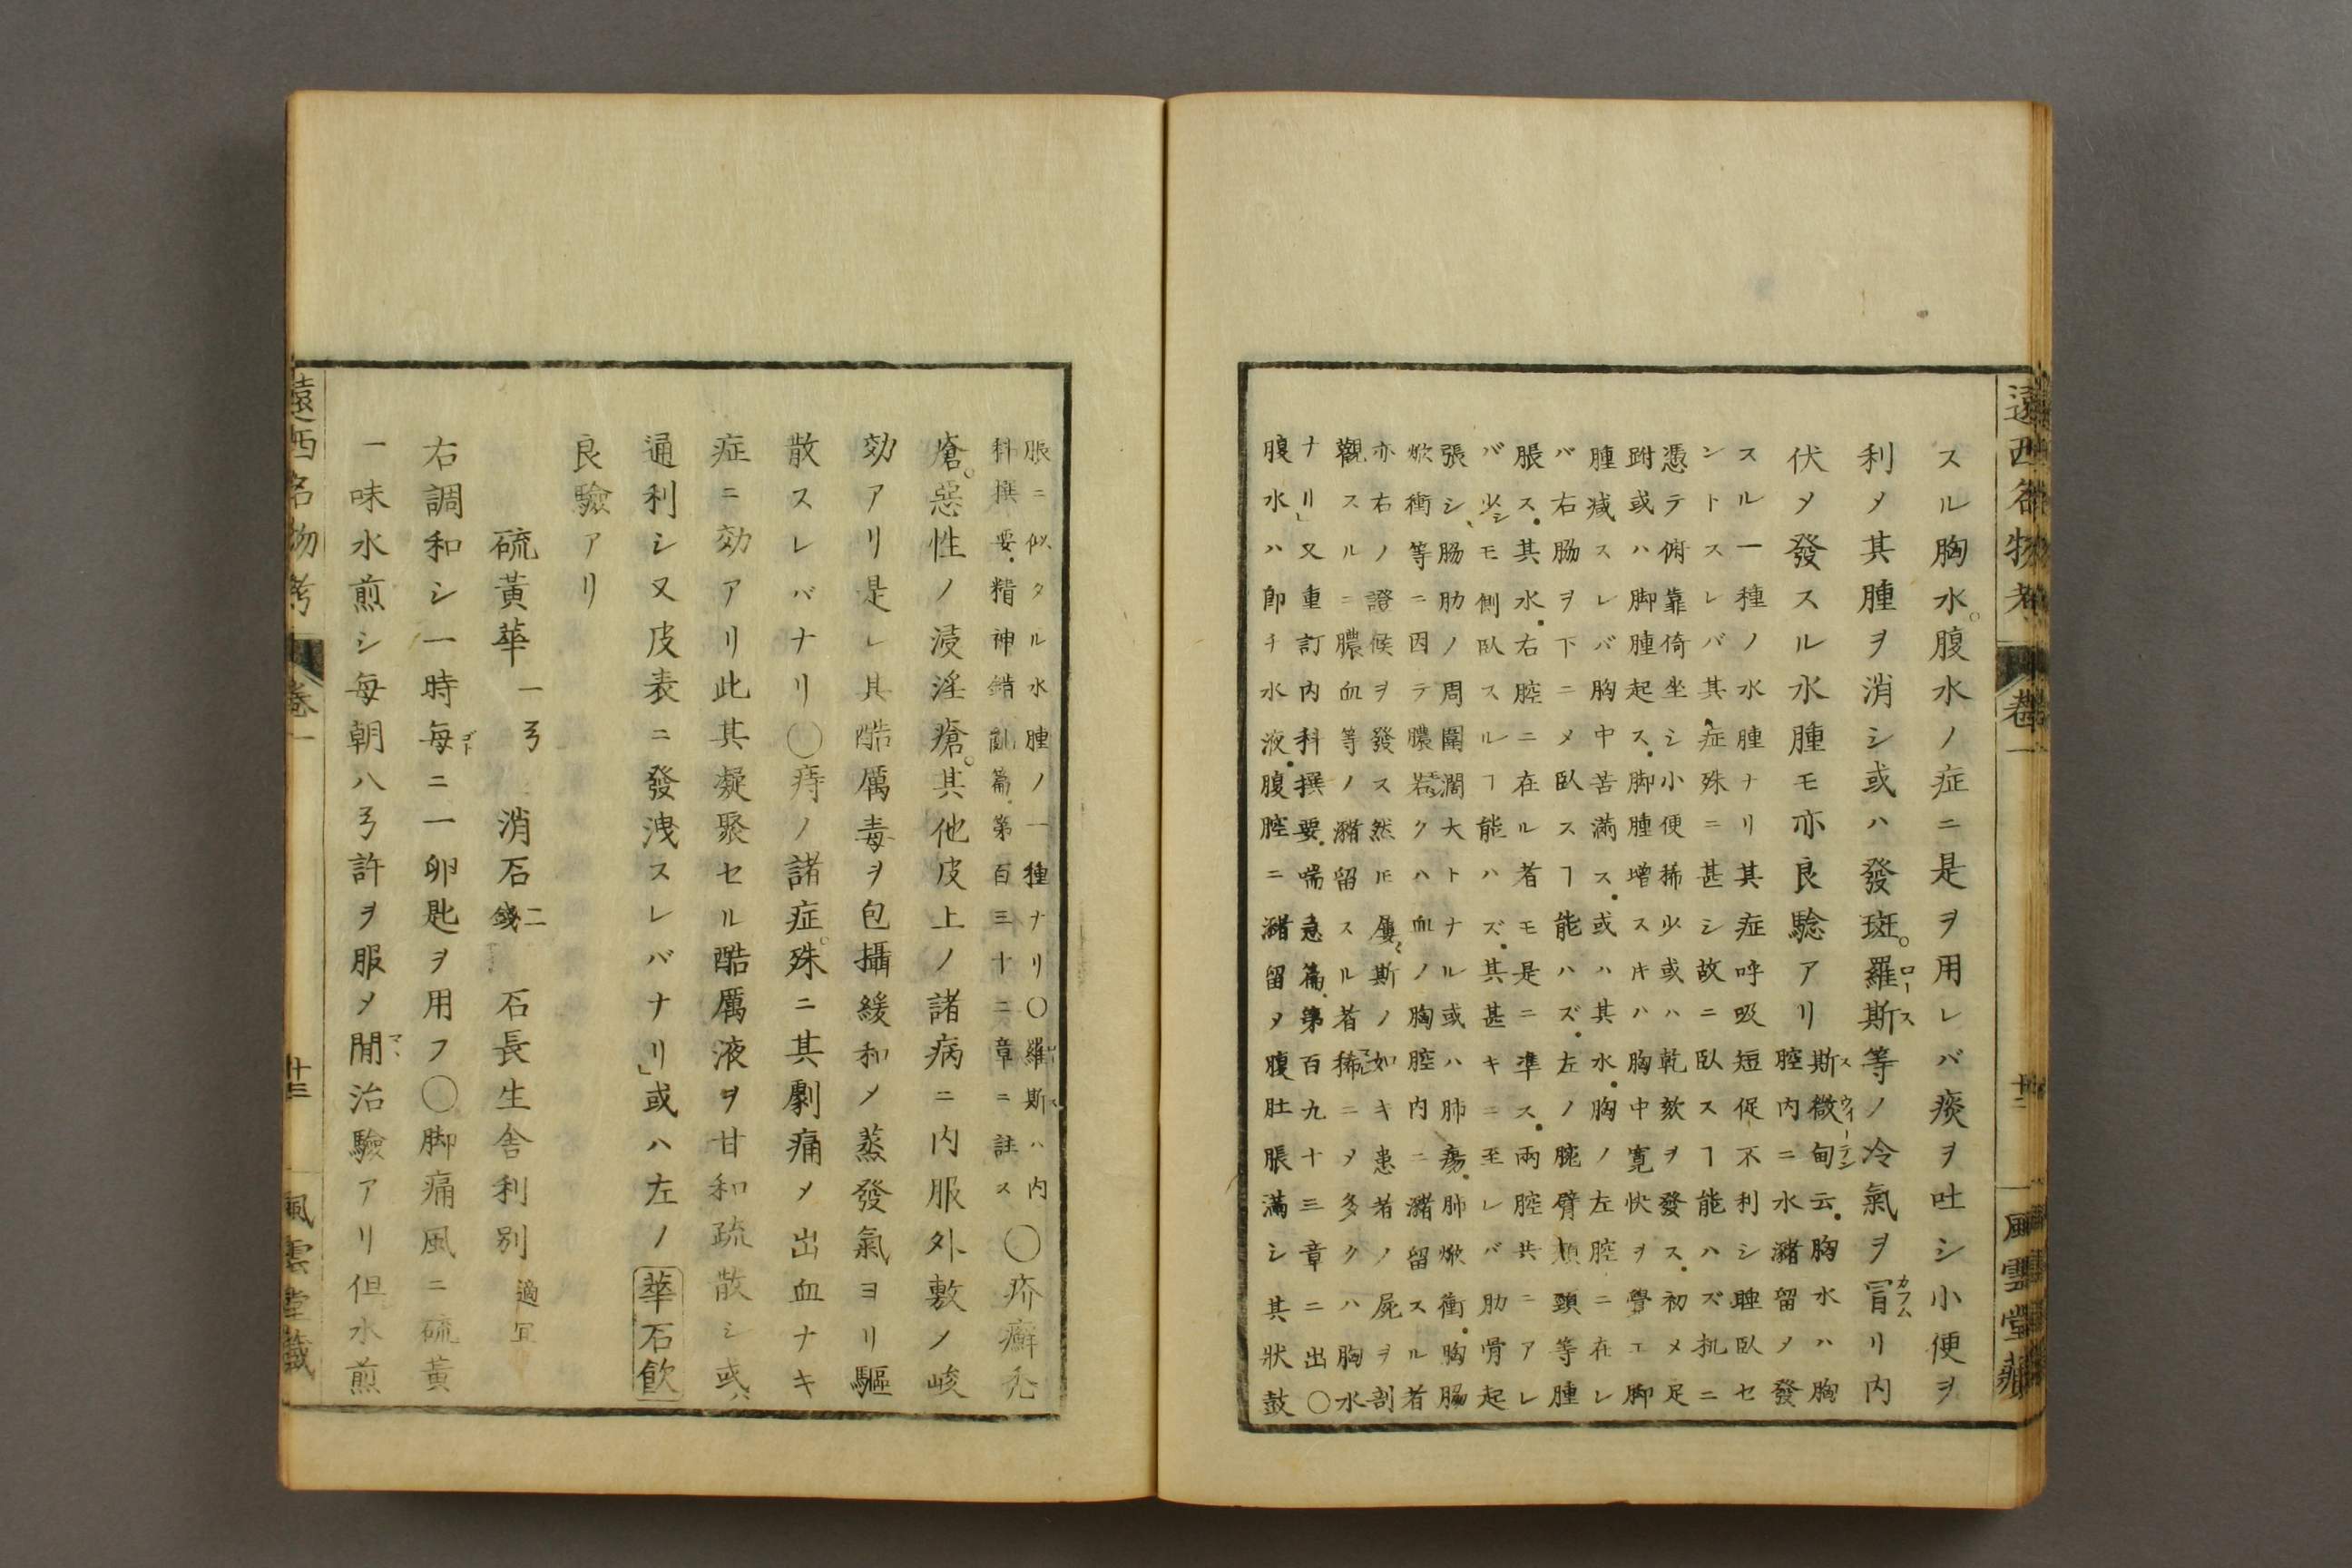 遠西名物考 卷一 十二 風雲堂藏
スル胸水。腹水ノ症ニ是ヲ用レバ痰ヲ吐シ小便ヲ
利メ其腫ヲ消シ或ハ發斑。羅斯等ノ冷氣ヲ冒リ内
伏ヲ發スル水腫モ亦良驗アリ
斯微甸云。胸水ハ胸
腔内ニ水瀦留メ發
スル一種ノ水腫ナリ其症呼吸短促不利シ睡臥セ
ントスレバ其症殊ニ甚シ故ニ臥スヿ能ハズ机ニ
憑テ俯靠倚坐シ小便稀少或ハ乾欬ヲ發ス。初メ足
跗或ハ脚腫起ス。脚腫増スキハ胸中寛快ヲ覺エ脚
腫减スレバ胸中苦滿ス。或ハ其水。胸ノ左腔ニ在レ
バ右脇ヲ下ニメ臥スヿ能ハズ。左ノ腕臂頬頸等腫
脹ス。其水。右腔ニ在ル者モ是ニ準ス。兩腔共ニアレ
バ少シモ側臥スルヿ能ハズ。其甚キニ至レバ肋骨起
張シ、脇肋ノ周圍濶大トナル或ハ肺瘍。肺焮衝。胸膓
焮衝等ニ因テ膿若クハ血ノ胸腔内ニ瀦留スル者
亦右ノ證候ヲ發ス然𪜈屢斯ノ如キ患者ノ屍ヲ剖
觀スルニ膿血等ノ瀦留スル者稀ニメ多クハ胸水
ナリ」又重訂内科撰要。喘急篇。第百九十三章ニ出○
腹水ハ即チ水液。腹腔ニ瀦留メ腹肚脹滿シ其狀鼓
脹ニ似タル水腫ノ一種ナリ○羅斯ハ内
科撰要。精神錯亂篇。第百三十二章ニ註ス
○疥癬禿
瘡。惡性ノ浸淫瘡。其他皮上ノ諸病ニ内服外敷ノ峻
効アリ是レ其酷厲毒ヲ包攝緩和メ蒸發氣ヨリ驅
散スレバナリ○痔ノ諸症。殊ニ其劇痛メ出血ナキ
症ニ効アリ此其凝聚セル酷厲液ヲ甘和疏散シ或ハ
通利シ又皮表ニ發洩スレバナリ」或ハ左ノ華石飲
良驗アリ
硫黃華 一弓 消石 二錢 石長生舍利別 適宜
右調和シ一時毎ニ一卵匙ヲ用フ○脚痛風ニ硫黃
一味水煎シ毎朝八弓許ヲ服メ間治驗アリ但水煎
遠西名物考 卷一 十三 風雲堂藏